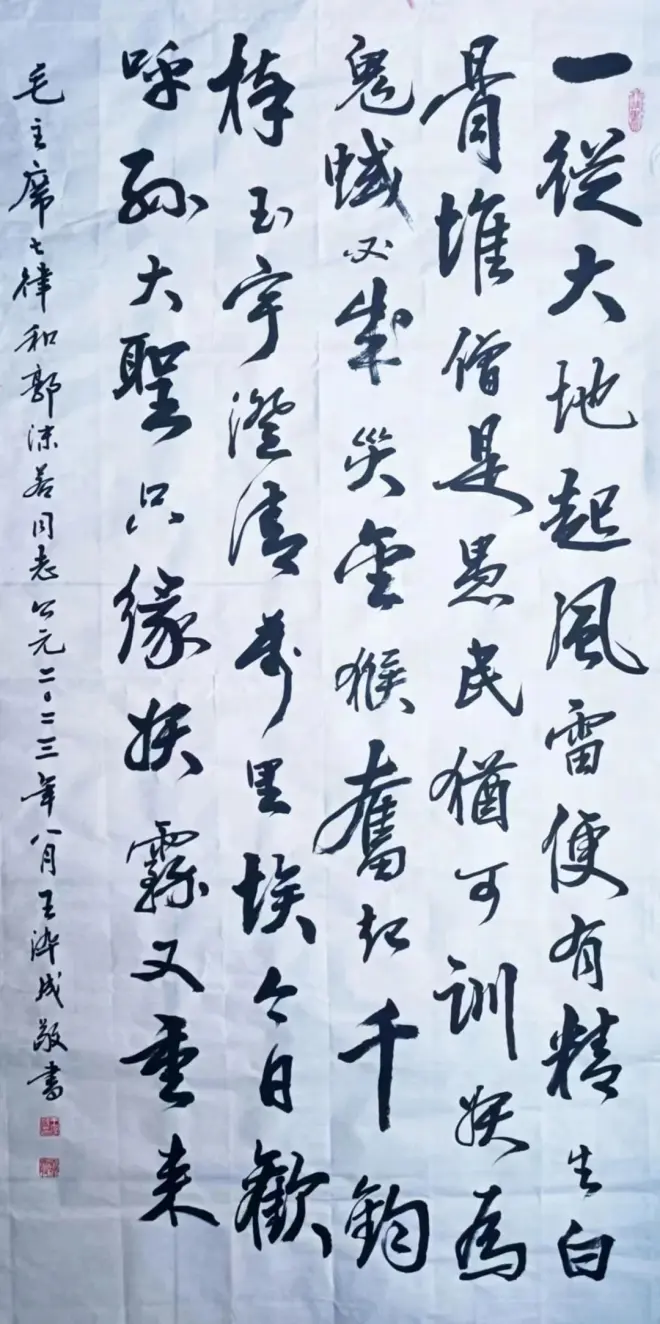 一從大地起風雷便有精生白
骨堆僧是愚民猶可訓妖為
鬼蜮必成災金猴奮起千鈞
棒玉宇澄清萬里埃今日歡
呼孫大聖只緣妖霧又重来
毛主席七律和郭沫若同志公元二〇二三年八月王成敬書